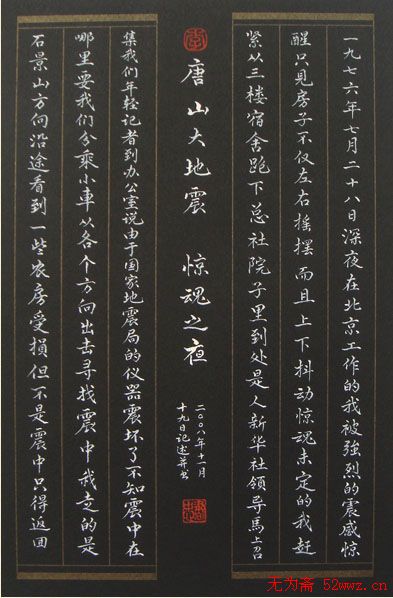 一九七六年七月二十八日深夜在北京工作的我被強烈的震感惊
醒只見房子不仅左右摇摆而且上下抖动惊魂未定的我赶
紧从三楼宿舍跑下总社院子里到处是人新华社领导馬上召
唐山大地震 惊魂之夜
二〇〇八年十一月
十九日记述并书
集我们年轻记者到办公室说由于国家地震局的仪器震坏了不知震中在
哪里要我们分乘小車从各个方向出击寻找震中我走的是
石景山方向沿途看到一些农房受損但不是震中只得返回
无为斋 52wwz.cn